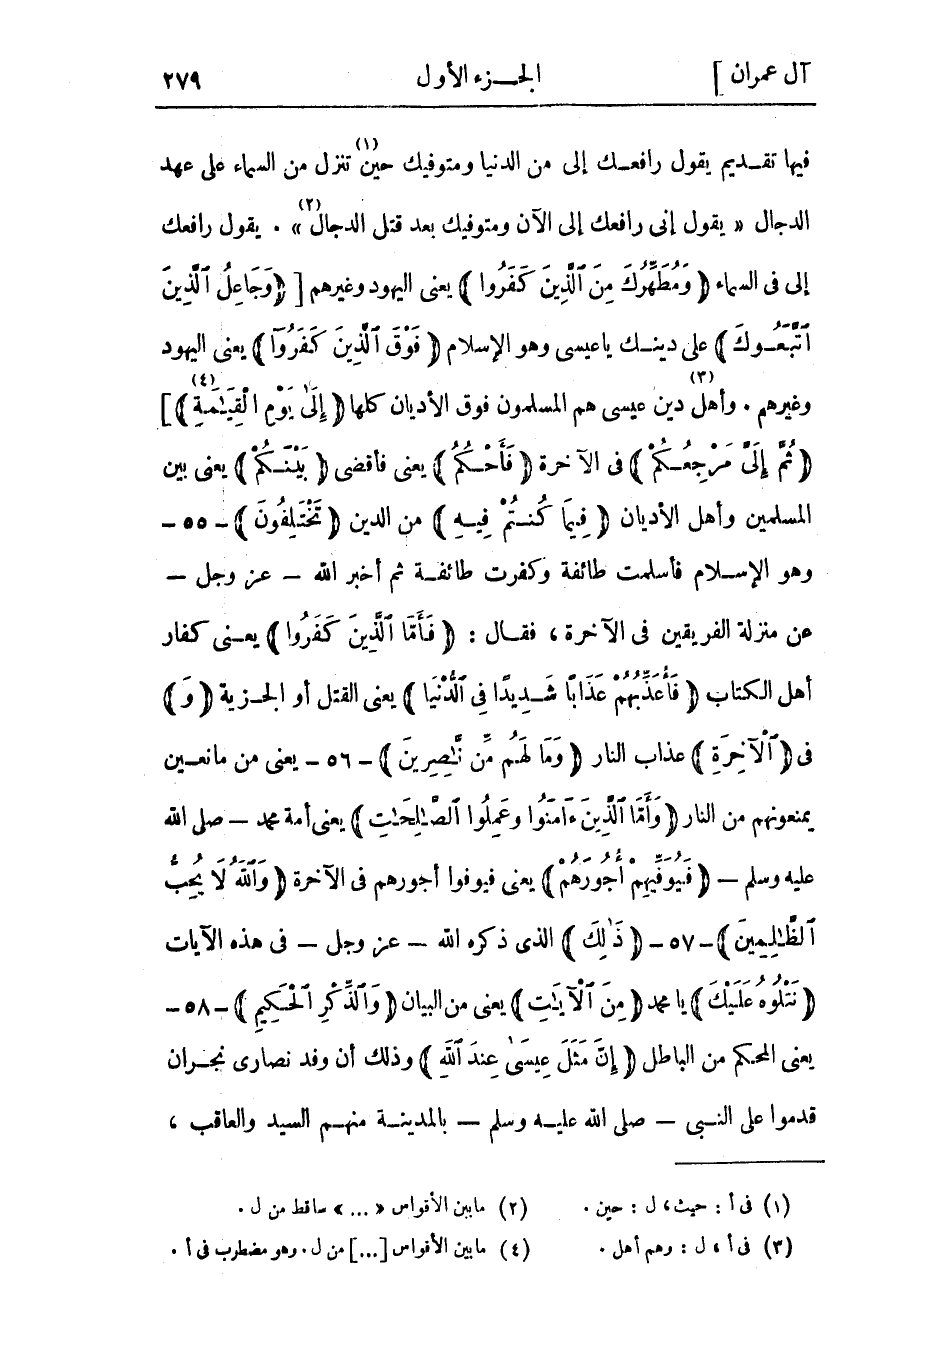 آل عمران ] الجـــزء الأول ٢٧٩
فيها تقـديم يقول رافعـك إلى من الدنيا ومتوفيك حين(١) تنزل من السماء على عهد
الدجال « يقول إنى رافعك إلى الآن ومتوفيك بعد قتل الدجال(٢)» . يقول رافعك
إلى فى السماء ﴿ وَمُطَهِّرُكَ مِنَ ٱلَّذِينَ كَفَرُوا ﴾ يعنى اليهود وغيرهم [ ﴿وَجَاعِلُ ٱلَّذِينَ
ٱتَّبَعُـوكَ ﴾ على دينـك ياعيسى وهو الإسلام ﴿ فَوْقَ ٱلَّذِينَ كَفَرُوٓا ﴾ يعنى اليهود
وغيرهم . وأهل(٣) دين عيسى هم المسلمون فوق الأديان كلها ﴿ إِلَىٰ يَوْمِ الْقِيَـٰمَةِ(٤) ﴾ ]
﴿ ثُمَّ إِلَىَّ مَرْجِعُـكُمْ ﴾ فى الآخرة ﴿ فَأَحْـكُمُ ﴾ يعنى فأقضى ﴿ بَيْنَـكُمْ ﴾ يعنى بين
المسلمين وأهل الأديان ﴿ فِيمَا كُنـتُمْ فِيـهِ ﴾ من الدين ﴿ تَخْتَلِفُونَ ﴾ ـ ٥٥ ـ
وهو الإسـلام فأسلمت طائفة وكفرت طائفـة ثم أخبر الله — عز وجل —
عن منزلة الفريقين فى الآخرة ، فقـال : ﴿ فَأَمَّا ٱلَّذِينَ كَفَرُوا ﴾ يعـنى كفار
أهل الكتاب ﴿ فَأُعَذِّبُهُمْ عَذَابًا شَـدِيدًا فِى ٱلدُّنْيَا ﴾ يعنى القتل أو الجـزية ﴿ وَ ﴾
فى ﴿ ٱلْآخِرَةِ ﴾ عذاب النار ﴿ وَمَا لَهُم مِّن نَّـٰصِرِينَ ﴾ ـ ٥٦ ـ يعنى من مانعـين
يمنعونهم من النار ﴿ وَأَمَّا ٱلَّذِينَ ءَامَنُوا وعَمِلُوا ٱلصَّـٰلِحَـٰتِ ﴾ يعنى أمة محمد — صلى الله
عليه وسلم — ﴿ فَيُوَفِّيهِمْ أُجُورَهُمْ ﴾ يعنى فيوفوا أجورهم فى الآخرة ﴿ وَٱللَّهُ لَا يُحِبُّ
ٱلظَّـٰلِمِينَ ﴾ ـ ٥٧ ـ ﴿ ذَٰلِكَ ﴾ الذى ذكره الله — عز وجل — فى هذه الآيات
﴿ نَتْلُوهُ عَلَيْكَ ﴾ يا محمد ﴿ مِنَ ٱلْآيَـٰتِ ﴾ يعنى من البيان ﴿ وَٱلذِّكْرِ ٱلْحَـكِيمِ ﴾ ـ ٥٨ ـ
يعنى المحكم من الباطل ﴿ إِنَّ مَثَلَ عِيسَىٰ عِندَ ٱللَّهِ ﴾ وذلك أن وفد نصارى نجـران
قدموا على النـبى — صلى الله عليـه وسلم — بالمدينـة منهـم السيد والعاقب ،
(١) فى أ : حيث ، ل : حين . (٢) مابين الأقواس « ... » ساقط من ل .
(٣) فى أ ، ل : وهم أهل . (٤) مابين الأقواس [...] من ل . وهو مضطرب فى أ .